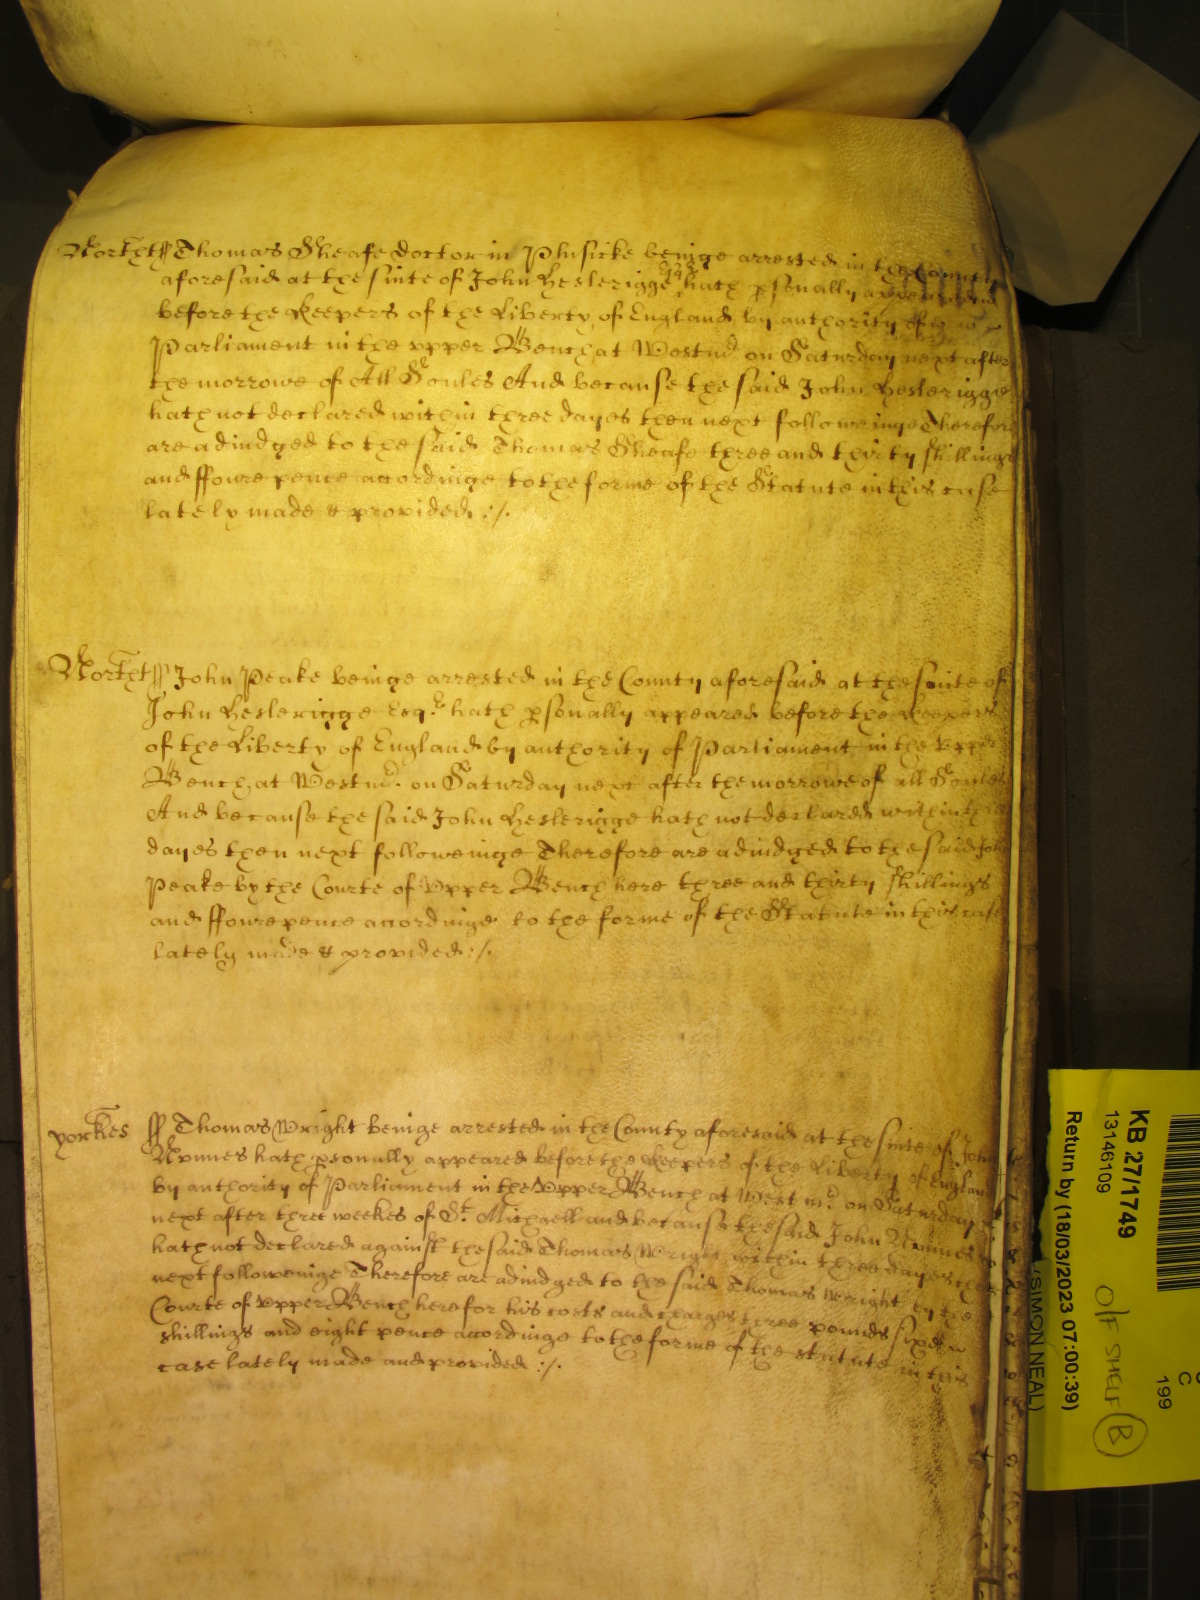 Northt ss Thomas Sheafe doctor in Phisicke beinge arrested in the County
aforesaid at the suite of John Heslerigge Esqr hath psonally appeared
before the Keepers of the Liberty of England by authority of
Parliament in the upper Bench at Westmr on Saturday next after
the morrowe of All Soules And because the said John Heslerigge
hath not declared within three dayes then next followeinge Therefore
are adiudged to the said Thomas Sheafe three and thirty shillings
and ffoure pence accordinge to the forme of the Statute in this case
lately made & provided ./.
Northt ss John Peake beinge arrested in the County aforesaid at the suite of
John Heslerigge Esqr hath psonally appeared before the Keepers
of the Liberty of England by authority of Parliament in the Upper
Bench at Westmr on Saturday next after the morrowe of all Soules
And because the said John Heslerigge hath not declared within three
dayes then next followeinge Therefore are adiudged to the said John
Peake by the Courte of Upper Bench here three and thirty shillings
and ffoure pence accordinge to the forme of the Statute in this case
lately made & provided ./.
yorkes ss Thomas Wright beinge arrested in the County aforesaid at the suite of John
Nunnes hath psonally appeared before the Keepers of the Liberty of England
by authority of Parliament in the Upper Bench at Westmr on Saturday
next after three weekes of St Michaell and because the said John Nunnes
hath not declared against the said Thomas Wright within three dayes then
next followeinge Therefore are adiudged to the said Thomas Wright by the
Courte of Upper Bench here for his costs and charges three pounds six
shillings and eight pence accordinge to the forme of the statute in this
case lately made and provided ./.
KB 27/1749
13146109
Return by (18/03/2023 07:00:39)
(SIMON NEAL)
O/F SHELF B
C
199